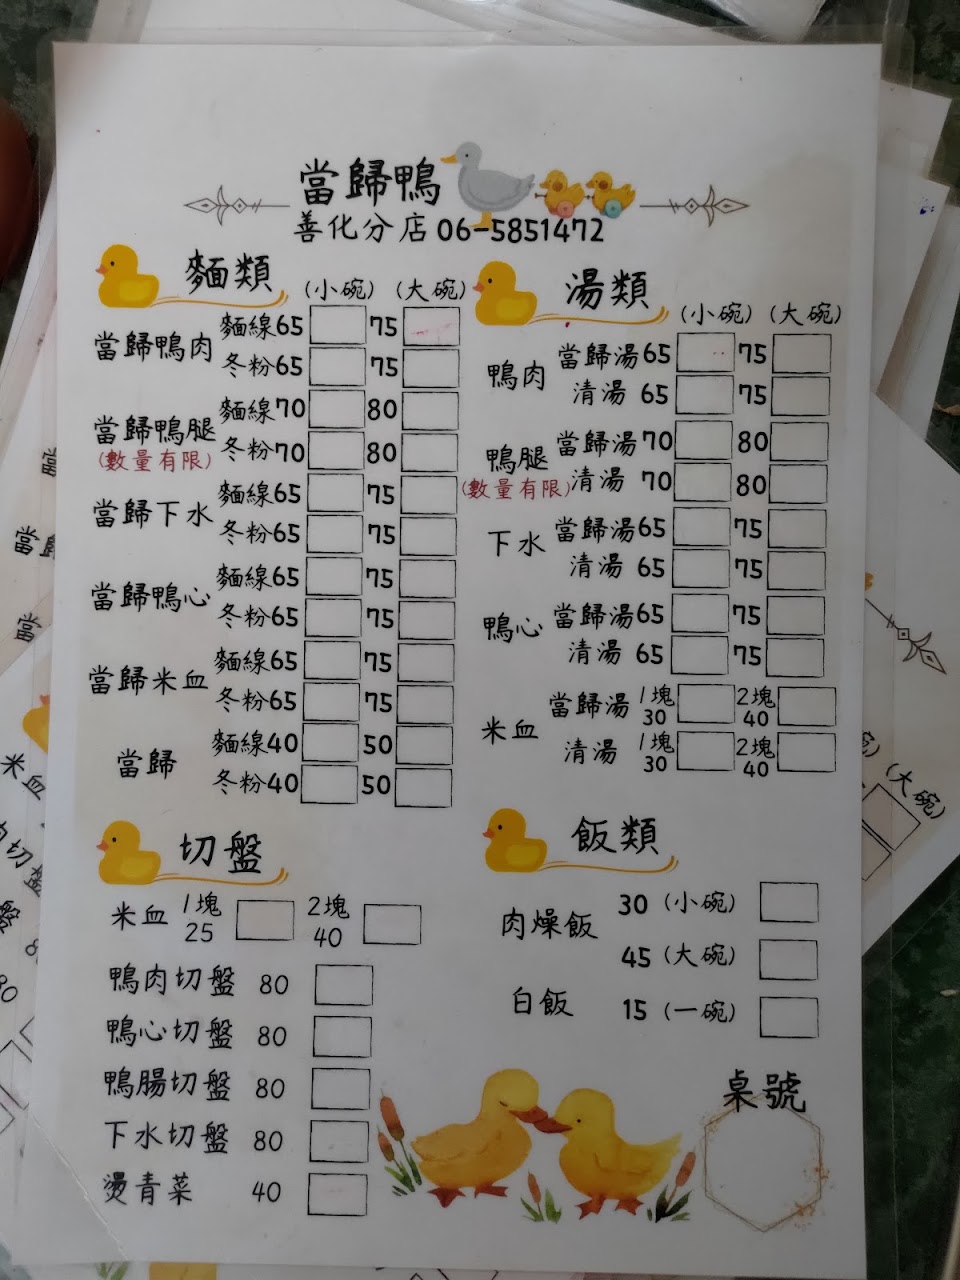 當歸鴨
善化分店 06-5851472
麵類 (小碗) (大碗)
當歸鴨肉 麵線65 75
冬粉65 75
當歸鴨腿 麵線70 80
(數量有限) 冬粉70 80
當歸下水 麵線65 75
冬粉65 75
當歸鴨心 麵線65 75
冬粉65 75
當歸米血 麵線65 75
冬粉65 75
當歸 麵線40 50
冬粉40 50
湯類 (小碗) (大碗)
鴨肉 當歸湯65 75
清湯 65 75
鴨腿 當歸湯70 80
(數量有限) 清湯 70 80
下水 當歸湯65 75
清湯 65 75
鴨心 當歸湯65 75
清湯 65 75
米血 當歸湯 1塊 30 2塊 40
清湯 1塊 30 2塊 40
切盤
米血 1塊 25 2塊 40
鴨肉切盤 80
鴨心切盤 80
鴨腸切盤 80
下水切盤 80
燙青菜 40
飯類
肉燥飯 30 (小碗)
45 (大碗)
白飯 15 (一碗)
桌號
當
當歸
當
米血
肉切盤
盤 8
80
碗) (大碗)